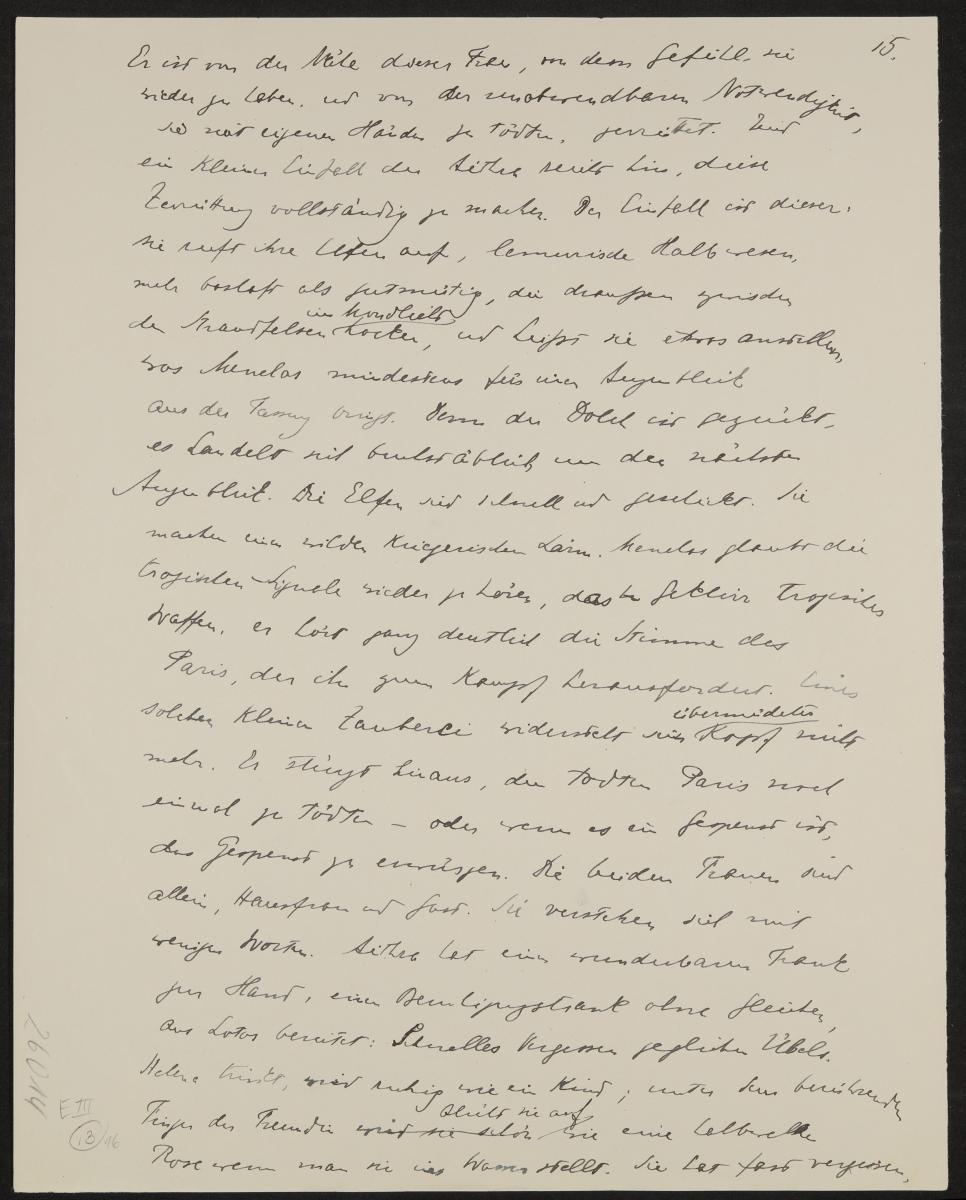 15.
Er ist von der Nähe dieser Frau, von dem Gefühl sie
wieder zu haben, und von der unabwendbaren Notwendigkeit,
sie mit eigenen Händen zu tödten, zerrüttet. Und
ein kleiner Einfall der Aithra reicht hin, diese
Zerrüttung vollständig zu machen. Der Einfall ist dieser:
sie ruft ihre Elfen auf, lemurische Halbwesen,
mehr boshaft als gutmütig, die draussen zwischen
im Mondlicht
den Strandfelsen hocken, und heisst sie etwas anstellen,
was Menelas mindestens für einen Augenblick
aus der Fassung bringt. Denn der Dolch ist gezückt,
es handelt sich buchstäblich um den nächsten
Augenblick. Die Elfen sind schnell und geschickt. Sie
machen einen wilden kriegerischen Lärm. Menelas glaubt die
trojischen Signale wieder zu hören, das Geklirr trojischer
Waffen, er hört ganz deutlich die Stimme des
Paris, der ihn zum Kampf herausfordert. Einer
übermüdeter
solchen kleinen Zauberei widersteht sein Kopf nicht
mehr. Er stürzt hinaus, den todten Paris noch
einmal zu tödten – oder wenn es ein Gespenst ist,
das Gespenst zu erwürgen. Die beiden Frauen sind
allein, Hausfrau und Gast. Sie verstehen sich mit
wenigen Worten. Aithra hat einen wunderbaren Trank
zur Hand, einen Beruhigungstrank ohne gleichen,
aus Lotos bereitet: schnelles Vergessen jeglichen Übels.
Helena trinkt, wird ruhig wie ein Kind; unter den berührenden
blüht sie auf
Finger der Freundin wird sie schön wie eine halbwelke
Rose wenn man sie ins Wasser stellt. Sie hat fast vergessen,
26014
E III
13/16